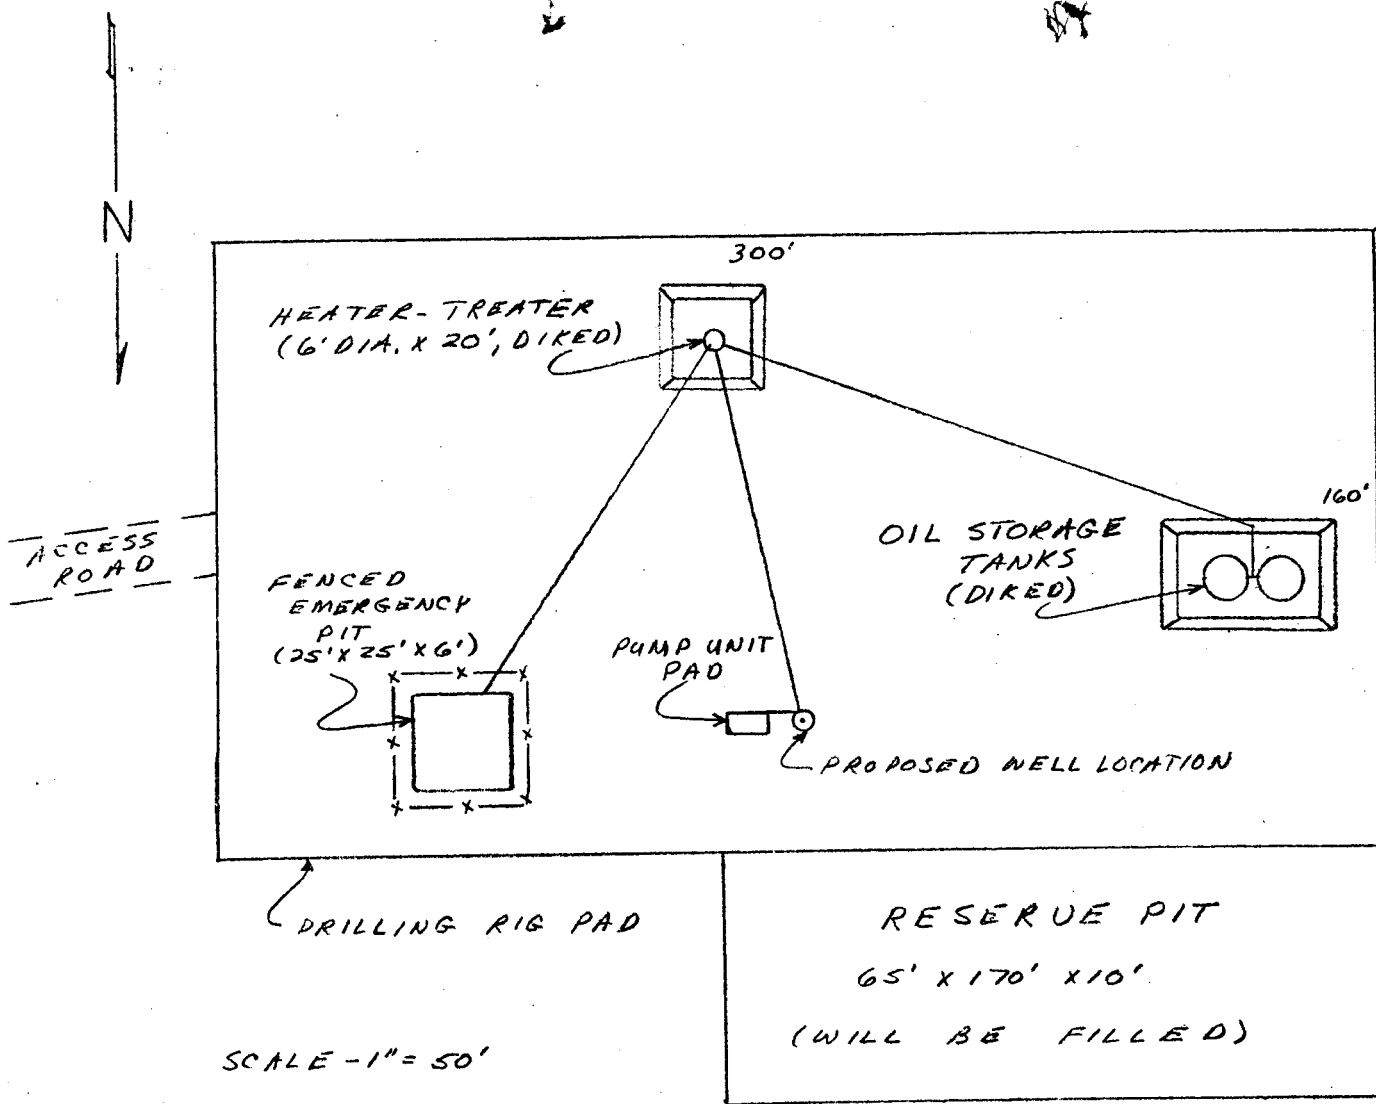 N
300'
HEATER-TREATER
(6' DIA. X 20', DIKED)
160'
OIL STORAGE
TANKS
(DIKED)
ACCESS
ROAD
FENCED
EMERGENCY
PIT
(25' X 25' X 6')
PUMP UNIT
PAD
PROPOSED WELL LOCATION
DRILLING RIG PAD
RESERVE PIT
65' X 170' X 10'
(WILL BE FILLED)
SCALE - 1" = 50'